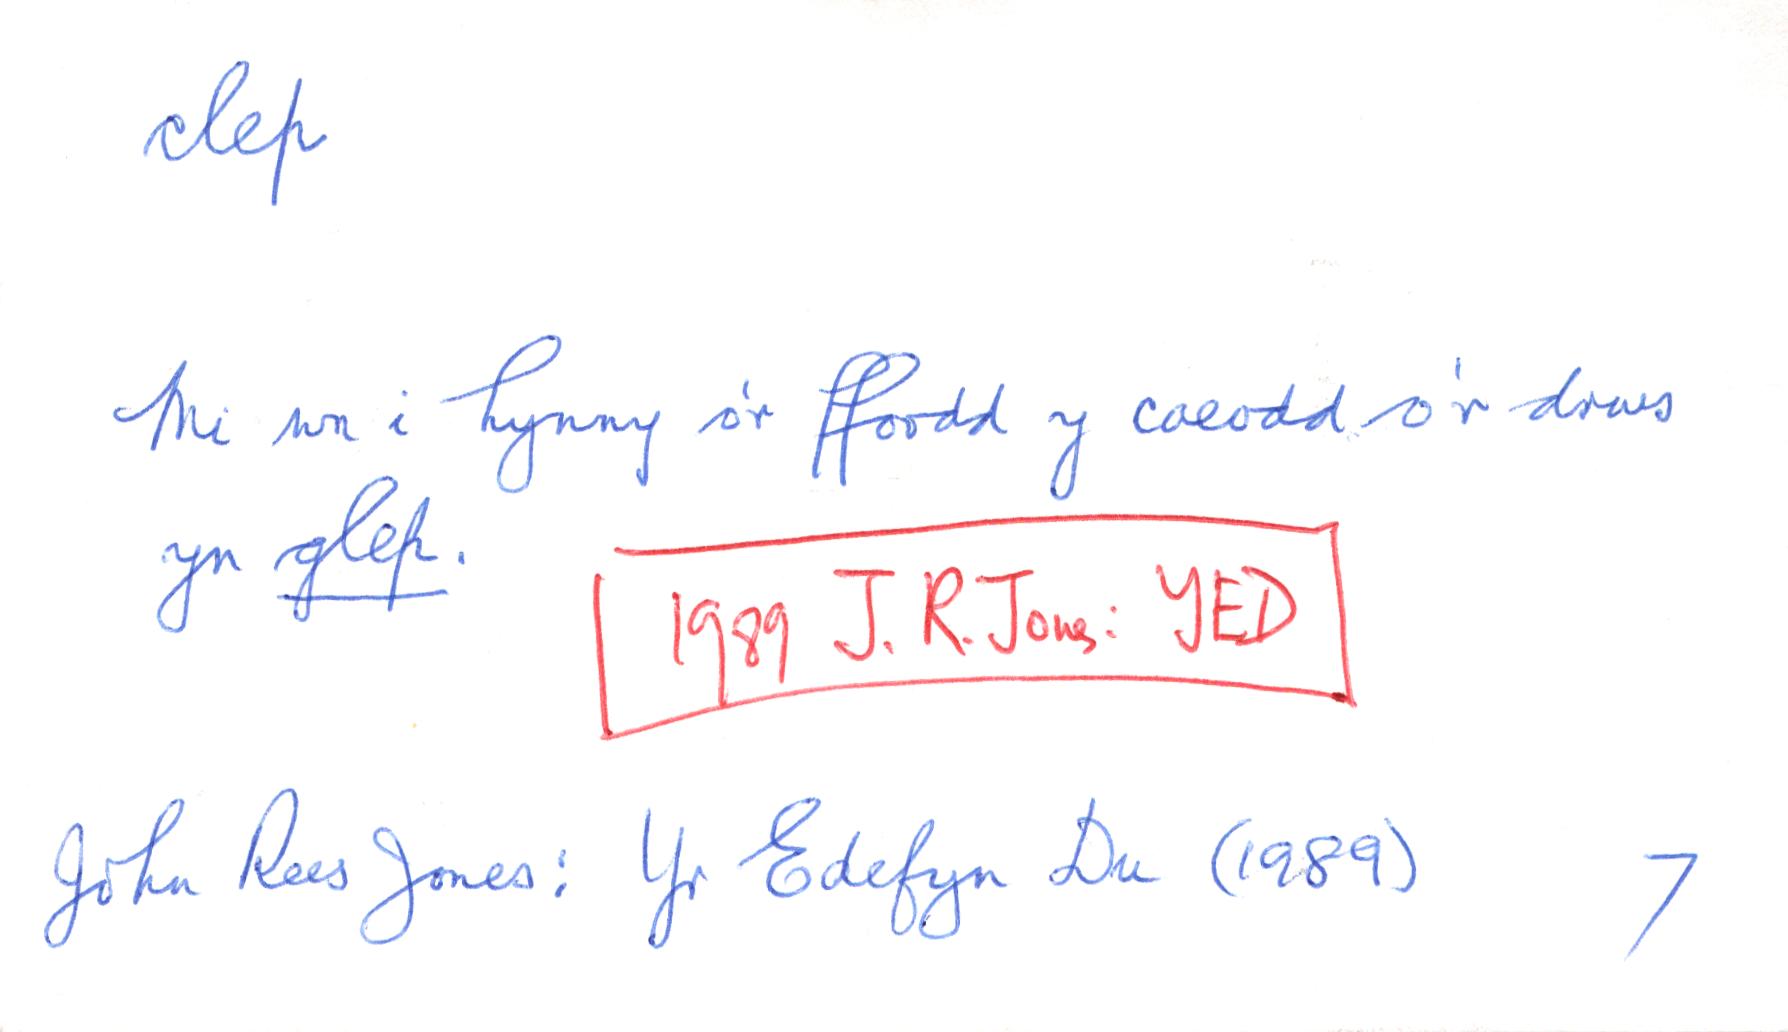 clep
Mi wn i hynny o'r ffordd y caeodd o'r drws
yn glep.
1989 J. R. Jones: YED
John Rees Jones: Yr Edefyn Du (1989) 7